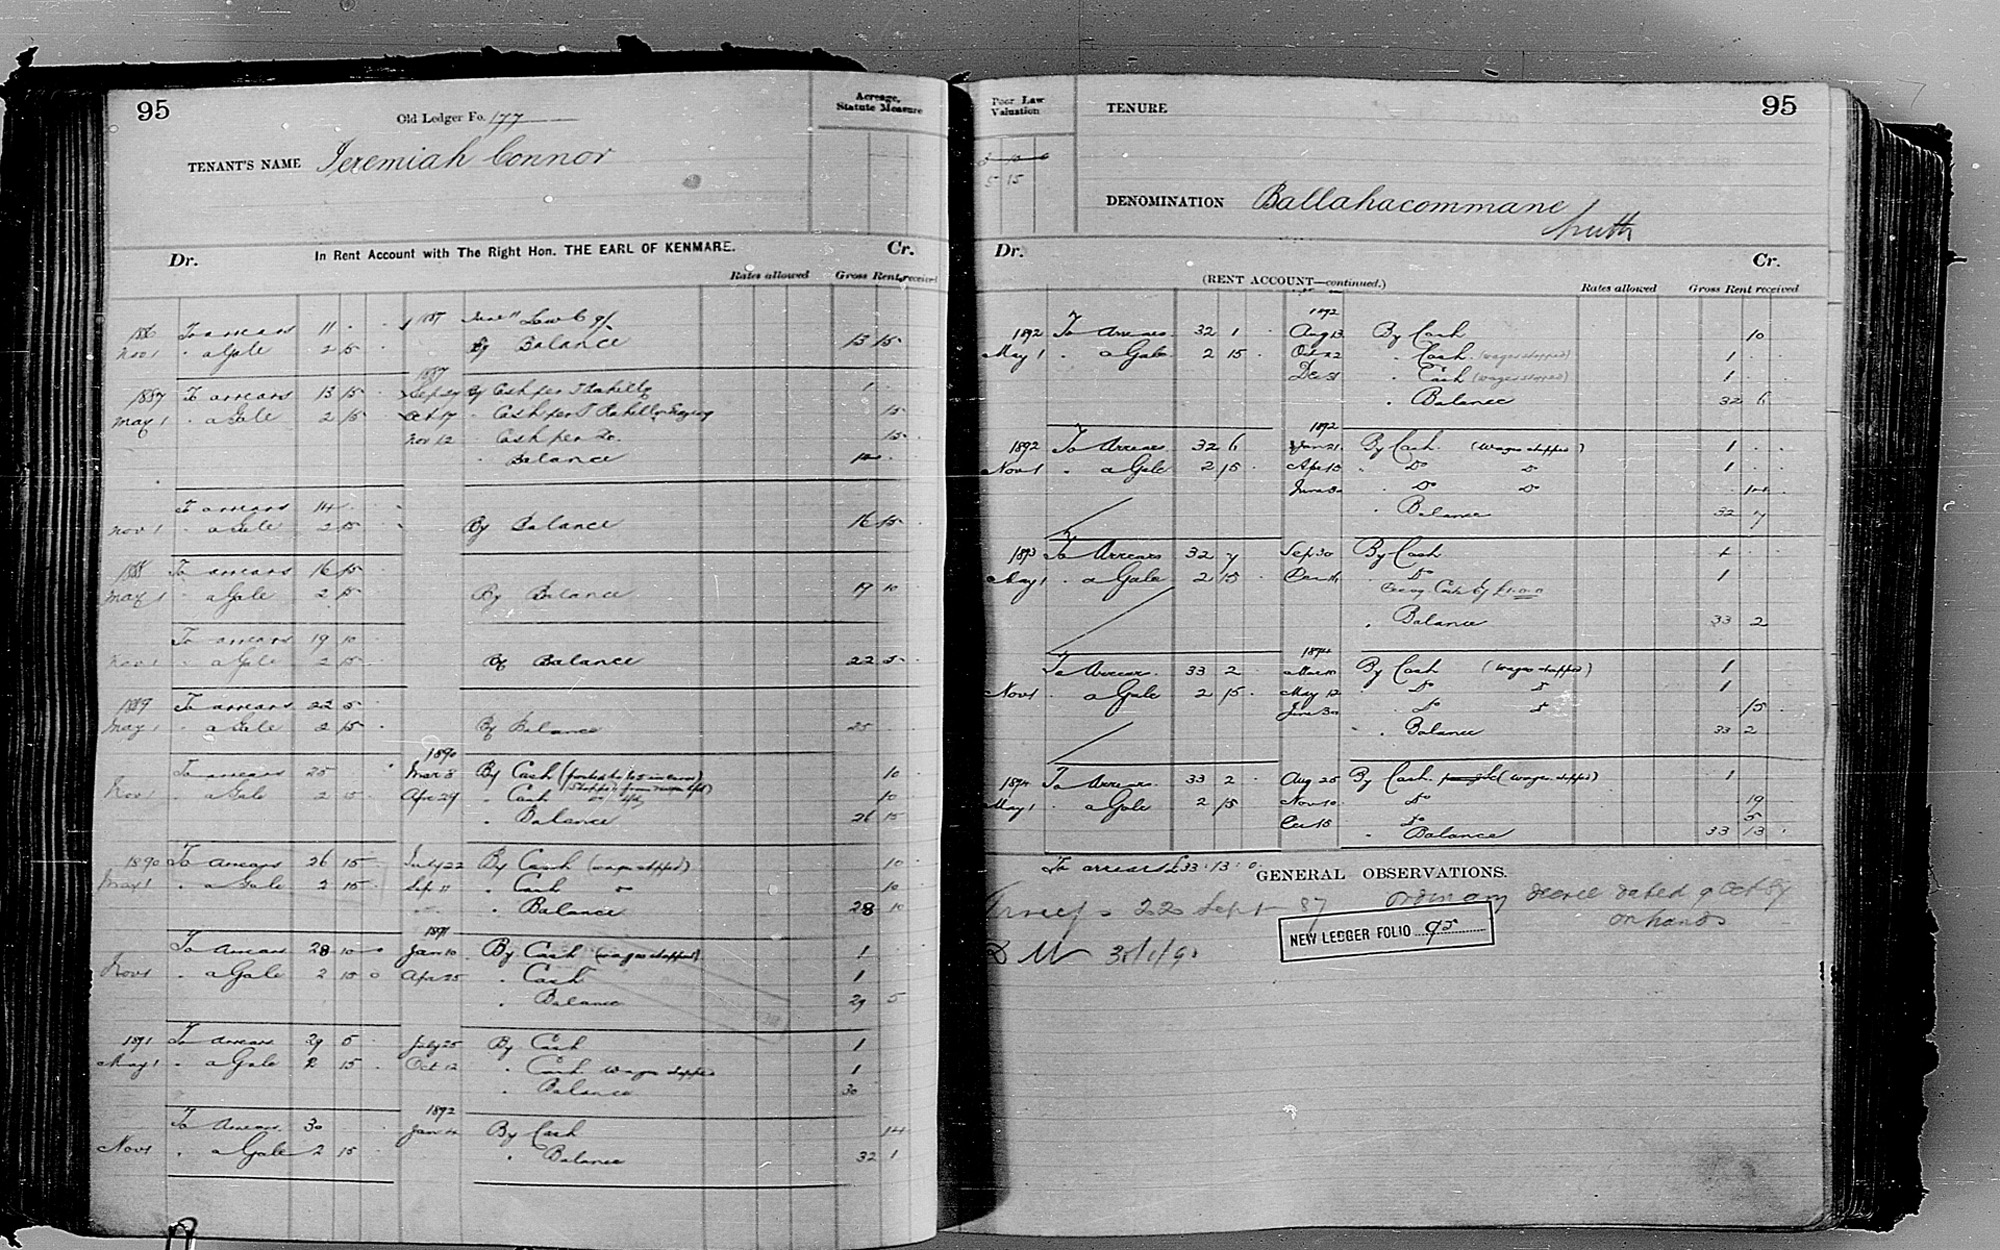 95
Old Ledger Fo. 177
Acreage, Statute Measure
TENANT'S NAME Jeremiah Connor
In Rent Account with The Right Hon. THE EARL OF KENMARE.
Dr. Cr.
Rates allowed Gross Rent received
1886 To arrears 11 . . 1887
Nov 1 . a Gale 2 15 . By Balance 13 15
1887
1887 To arrears 13 15 Sep 29 By Cash per 1
May 1 . a Gale 2 15 Oct 17 . Cash per 15
Nov 12 . Cash per Do. 15
. Balance 14
To arrears 14
Nov 1 . a Gale 2 15 By Balance 16 15
1888 To arrears 16 15
May 1 . a Gale 2 15 By Balance 19 10
To arrears 19 10
Nov 1 . a Gale 2 15 By Balance 22 5
1889 To arrears 22 5
May 1 . a Gale 2 15 By Balance 25
1890
To arrears 25 Mar 8 By Cash (posted to 65 in error) 10
Nov 1 . a Gale 2 15 Apr 29 . Cash 10
. Balance 26 15
1890 To Arrears 26 15 July 22 By Cash (wages stopped) 10
May 1 . a Gale 2 15 Sep 11 . Cash Do 10
. Balance 28 10
1891
To Arrears 28 10 Jan 10 By Cash (wages stopped) 1
Nov 1 . a Gale 2 15 Apr 25 . Cash 1
. Balance 29 5
1891 To Arrears 29 5 July 25 By Cash 1
May 1 . a Gale 2 15 Oct 12 . Cash wages stopped 1
. Balance 30
1892
To Arrears 30 Jan 4 By Cash 14
Nov 1 . a Gale 2 15 . Balance 32 1
Poor Law Valuation
TENURE
95
5 15
DENOMINATION Ballahacommane
South
Dr. Cr.
(RENT ACCOUNT—continued.)
Rates allowed Gross Rent received
1892
1892 To Arrears 32 1 Aug 13 By Cash 10
May 1 . a Gale 2 15 Oct 22 . Cash (wages stopped) 1
Dec 31 . Cash (wages stopped) 1
. Balance 32 6
1892
1892 To Arrears 32 6 Jan 21 By Cash (Wages stopped) 1
Nov 1 . a Gale 2 15 Apr 15 . Do Do 1
June 30 . Do Do 14
. Balance 32 7
1893 To Arrears 32 7 Sep 30 By Cash 1
May 1 . a Gale 2 15 Do 1
£1.0.0
. Balance 33 2
1894
To Arrears 33 2 Mar 10 By Cash (wages stopped) 1
Nov 1 . a Gale 2 15 May 12 . Do Do 1
June 30 . Do Do 15
. Balance 33 2
1894 To Arrears 33 2 Aug 25 By Cash (wages stopped) 1
May 1 . a Gale 2 15 Nov 10 Do 19
Dec 15 Do 5
. Balance 33 13
To arrears £33 . 13 . 0
GENERAL OBSERVATIONS.
22 Sept 87 ordinary decree dated 9 Oct 87
on hands
NEW LEDGER FOLIO 95
D M